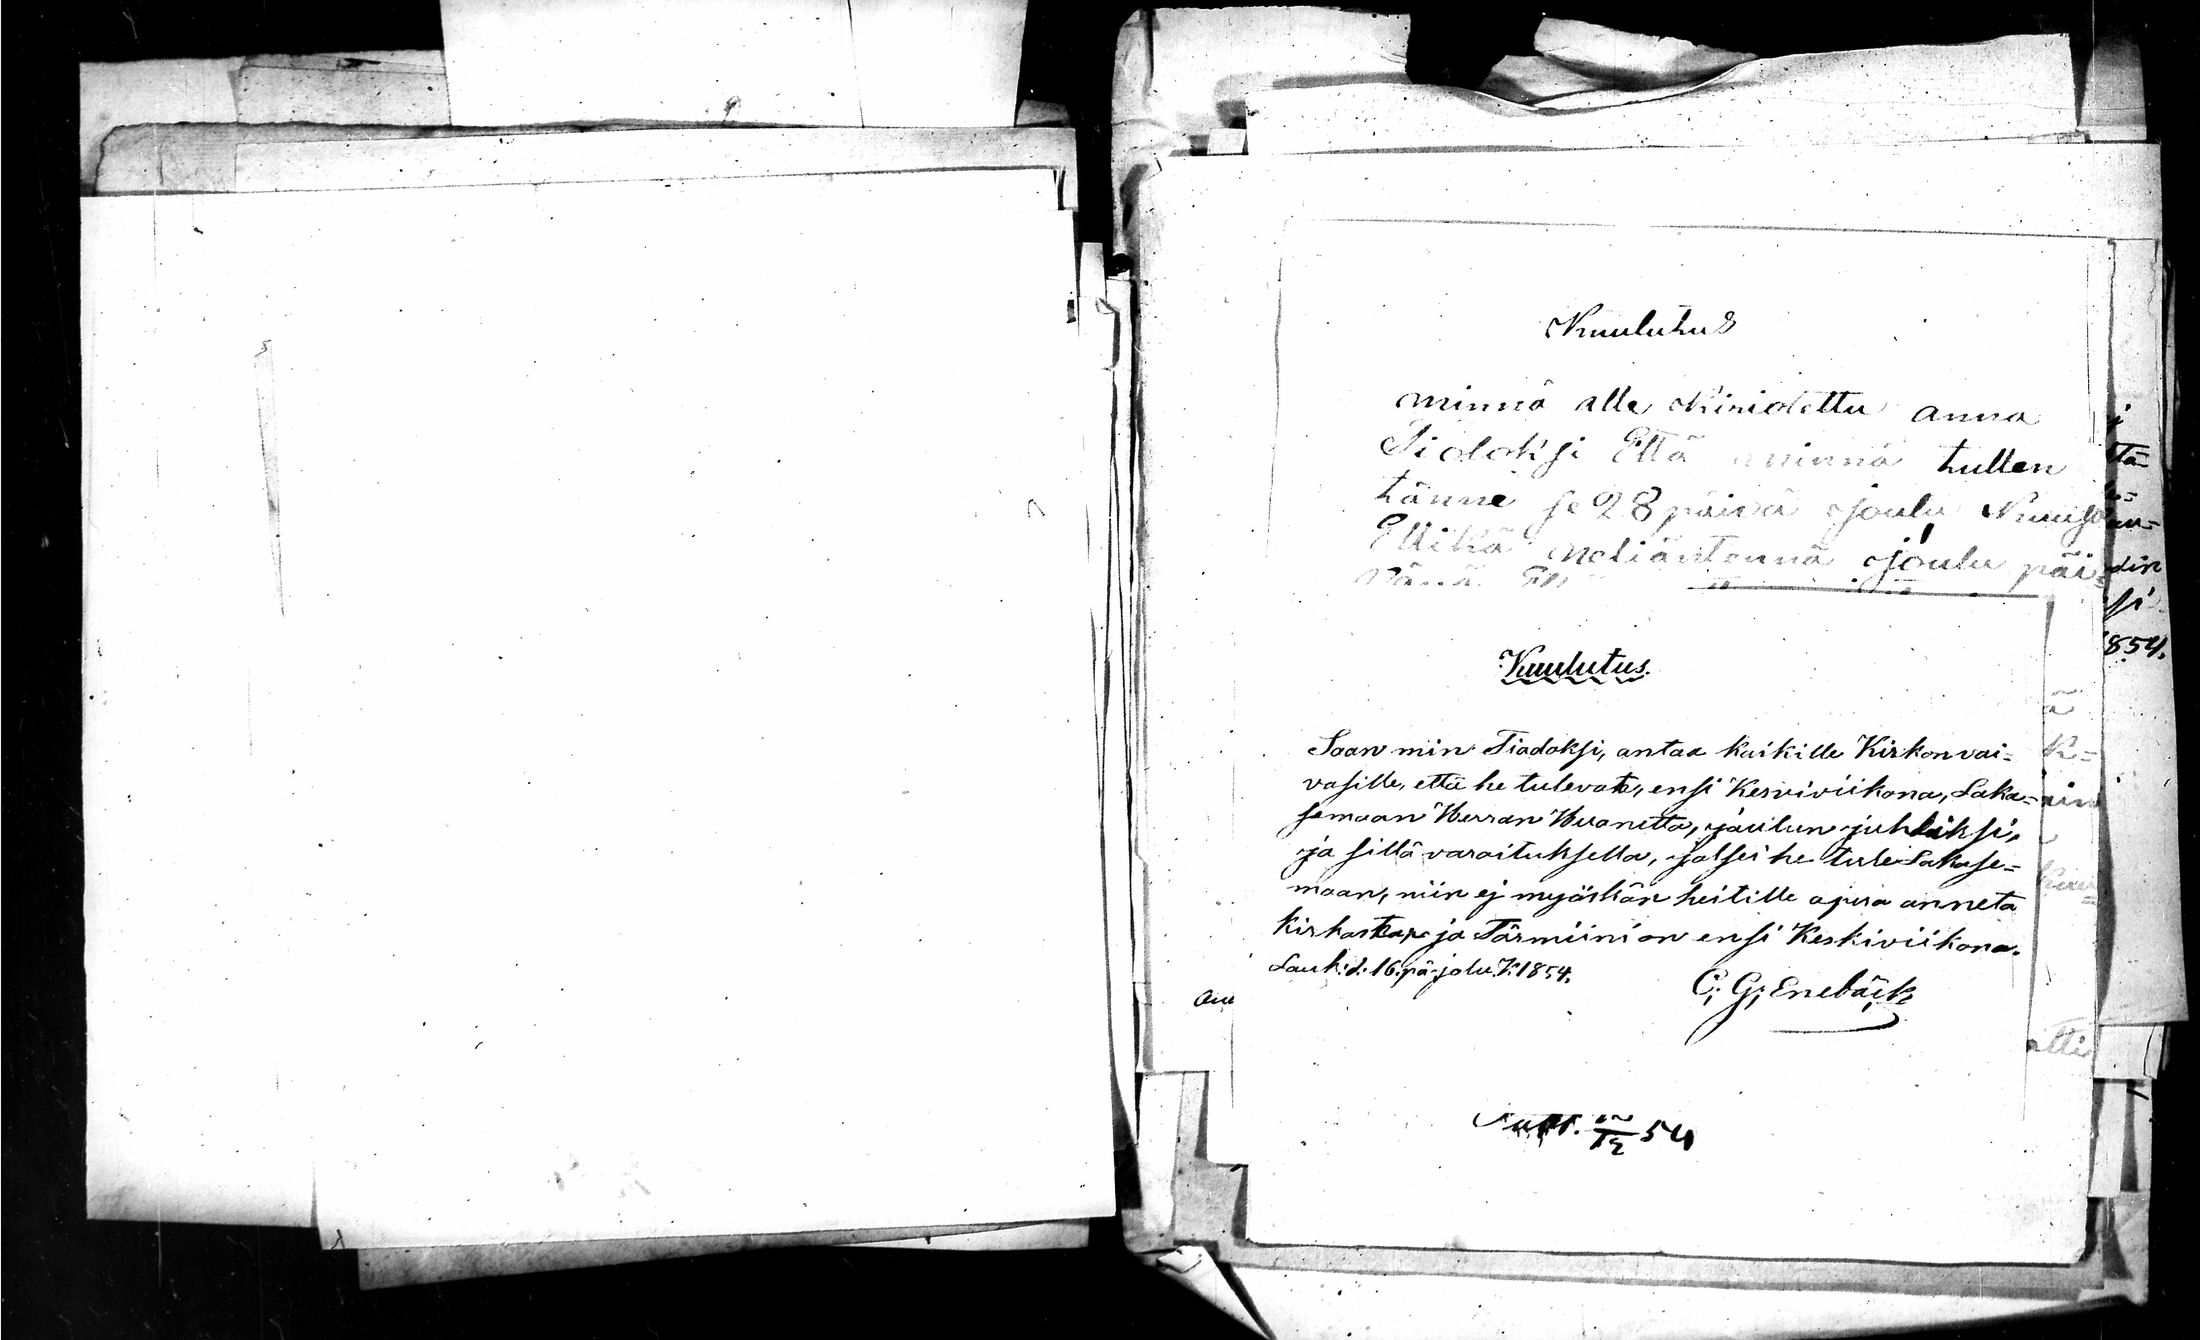 Kuulutus
minnä alle Kiriotettu anna
Tiodoksi Että minnä tullen
tänne se 28 päivä joulu Kuuso
Ellikä neliäntennä joulu päi=
Kuulutus.
Saan min Tiadoksi, antaa kaikille Kirkonvai=
vasille, että he tulevate, ensi Kesviviikona, Laka=
semaan Herran Huonetta, jäulun juhlaksi,
ja sillä varoituksella, jolsei he tule Lakase=
maan, niin ej myöskän heitille apua anneta
kirkosta, ja Tärmiini on ensi Keskiviikona.
Lauk: d: 16. pä joulu. K: 1854.
C; G; Enebäck
54
ttä
din
si
1854.
ä
K=
atti